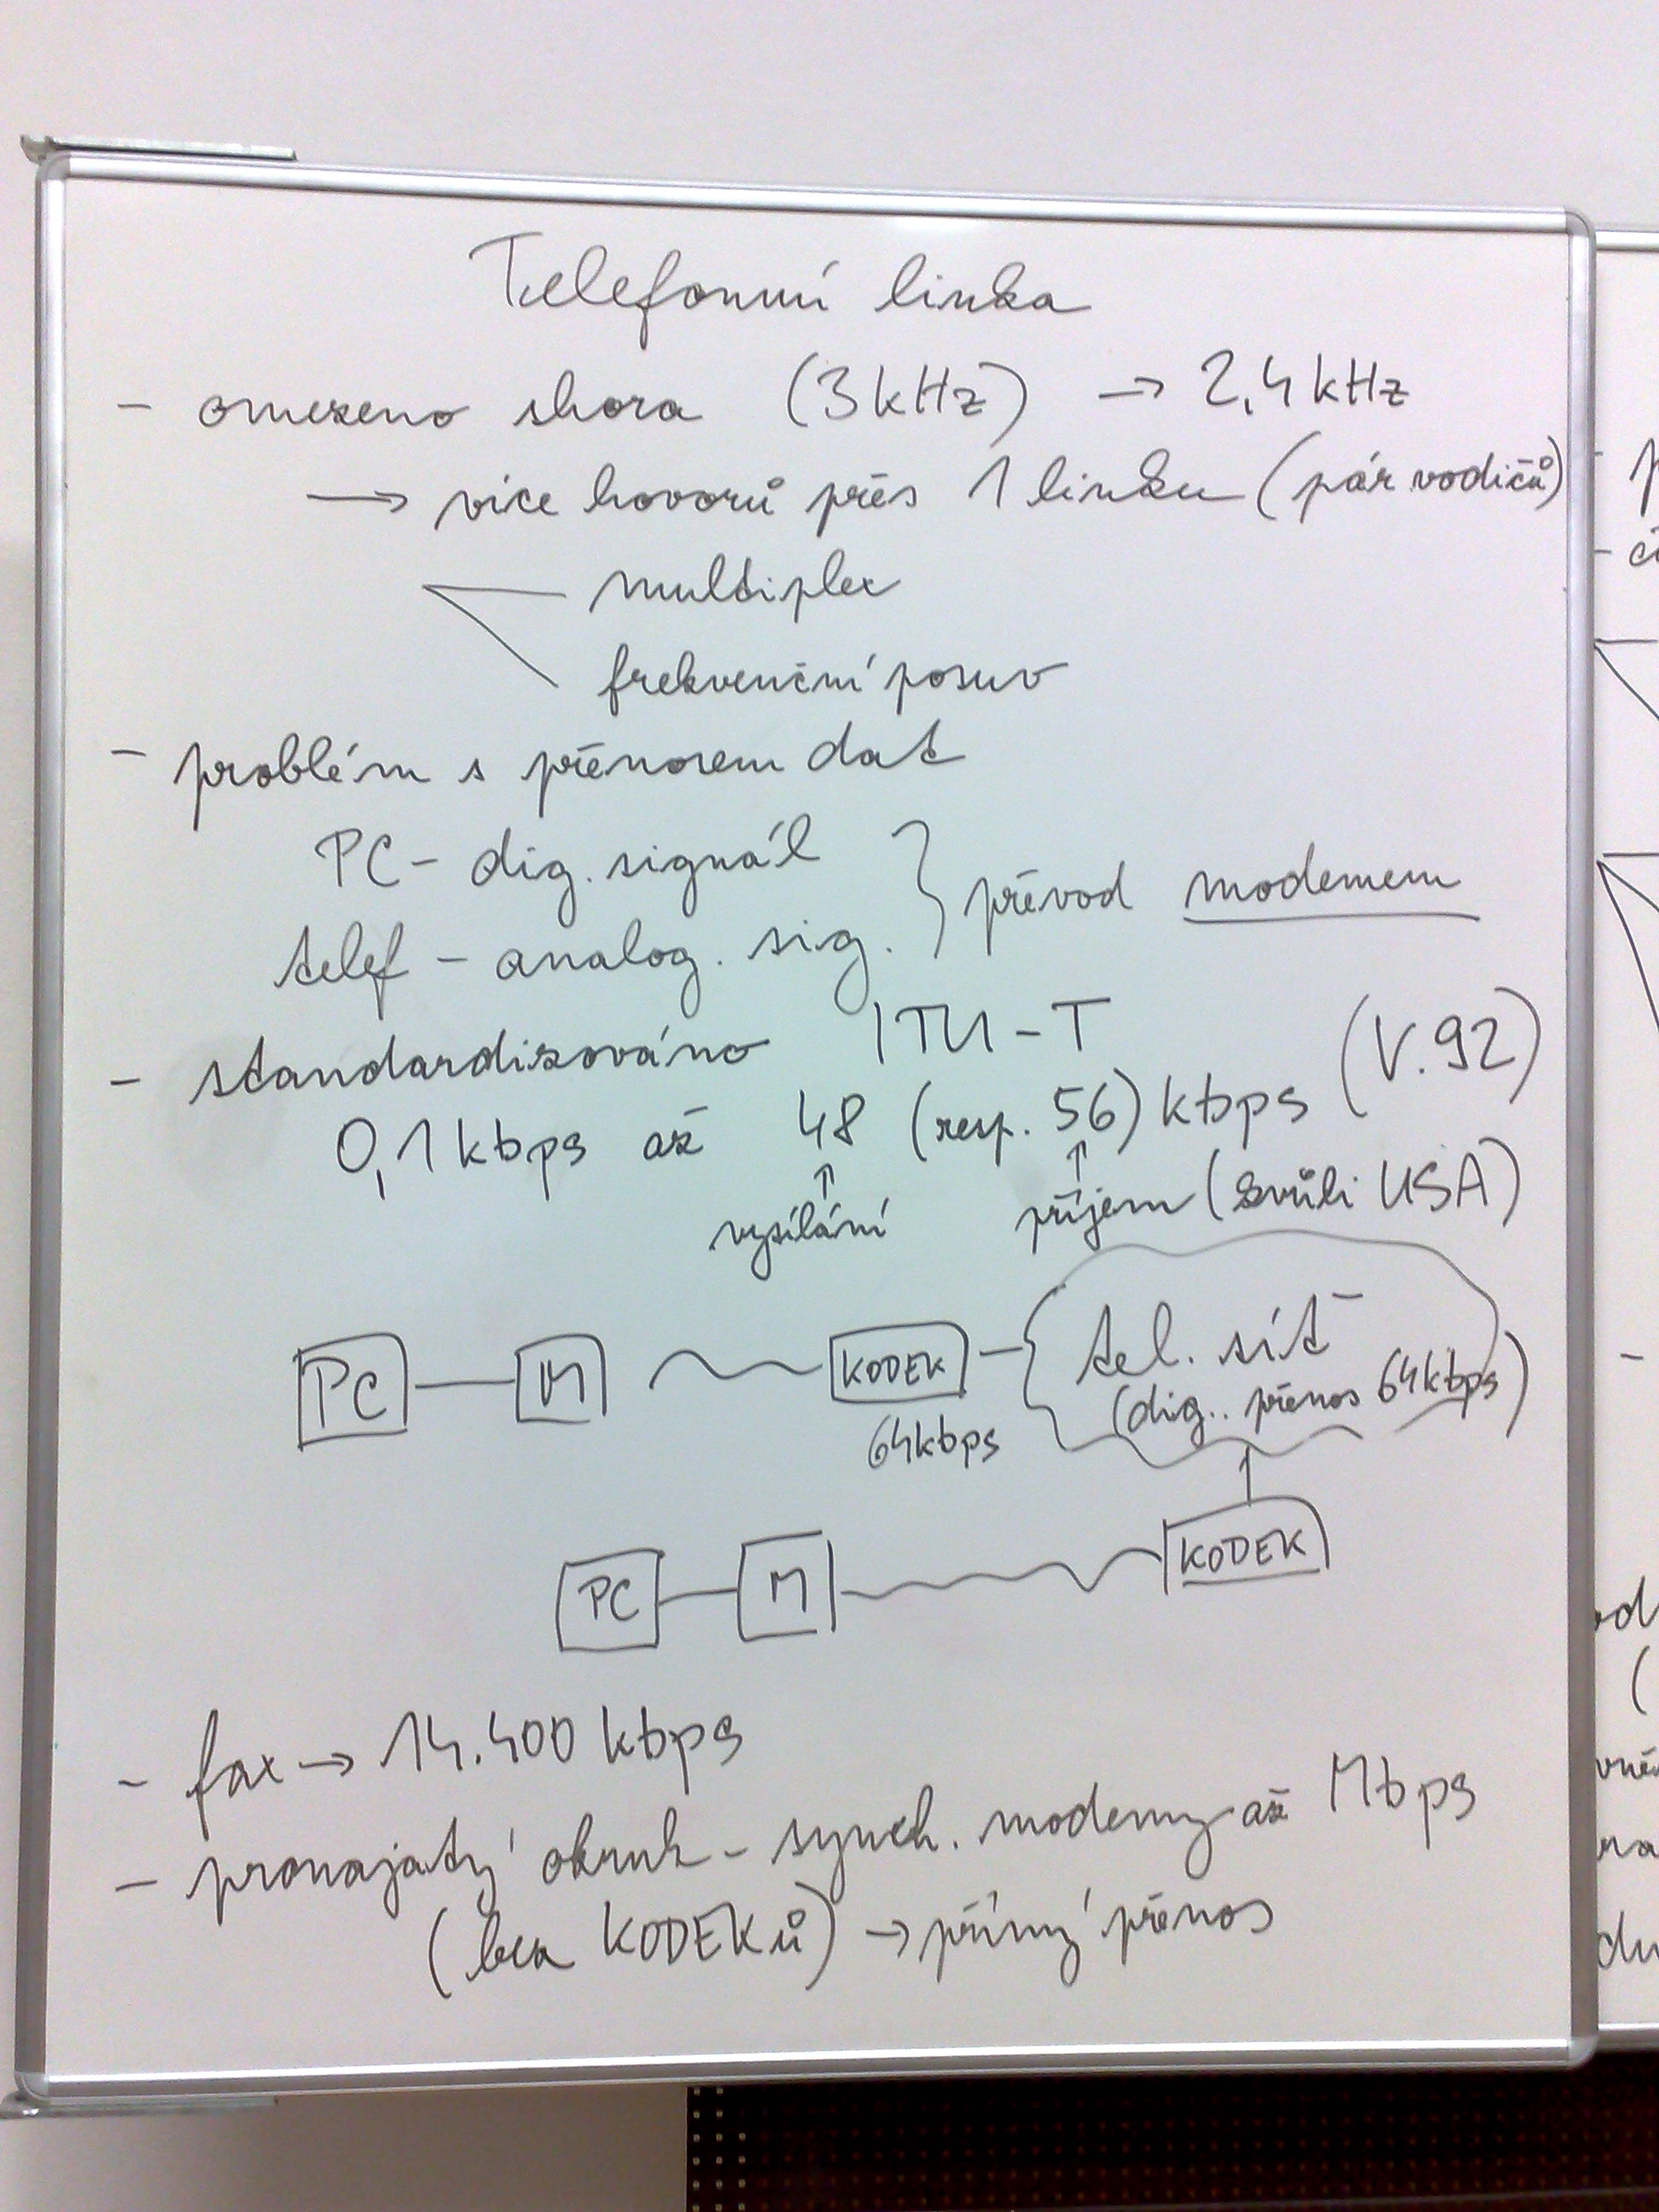 Telefonní linka
- omezeno shora (3kHz) → 2,4 kHz
→ více hovorů přes 1 linku (pár vodičů)
multiplex
frekvenční posuv
- problém s přenosem dat
PC - dig. signál
telef - analog. sig. } převod modemem
- standardizováno ITU-T (V.92)
0,1 kbps až 48 (resp. 56) kbps
↑ vysílání ↑ příjem (zvůli USA)
PC M KODEK tel. síť
64kbps (dig. přenos 64kbps)
PC M KODEK
- fax → 14.400 kbps
- pronajatý okruh - synch. modemy až Mbps
(bez KODEKů) → přímý přenos